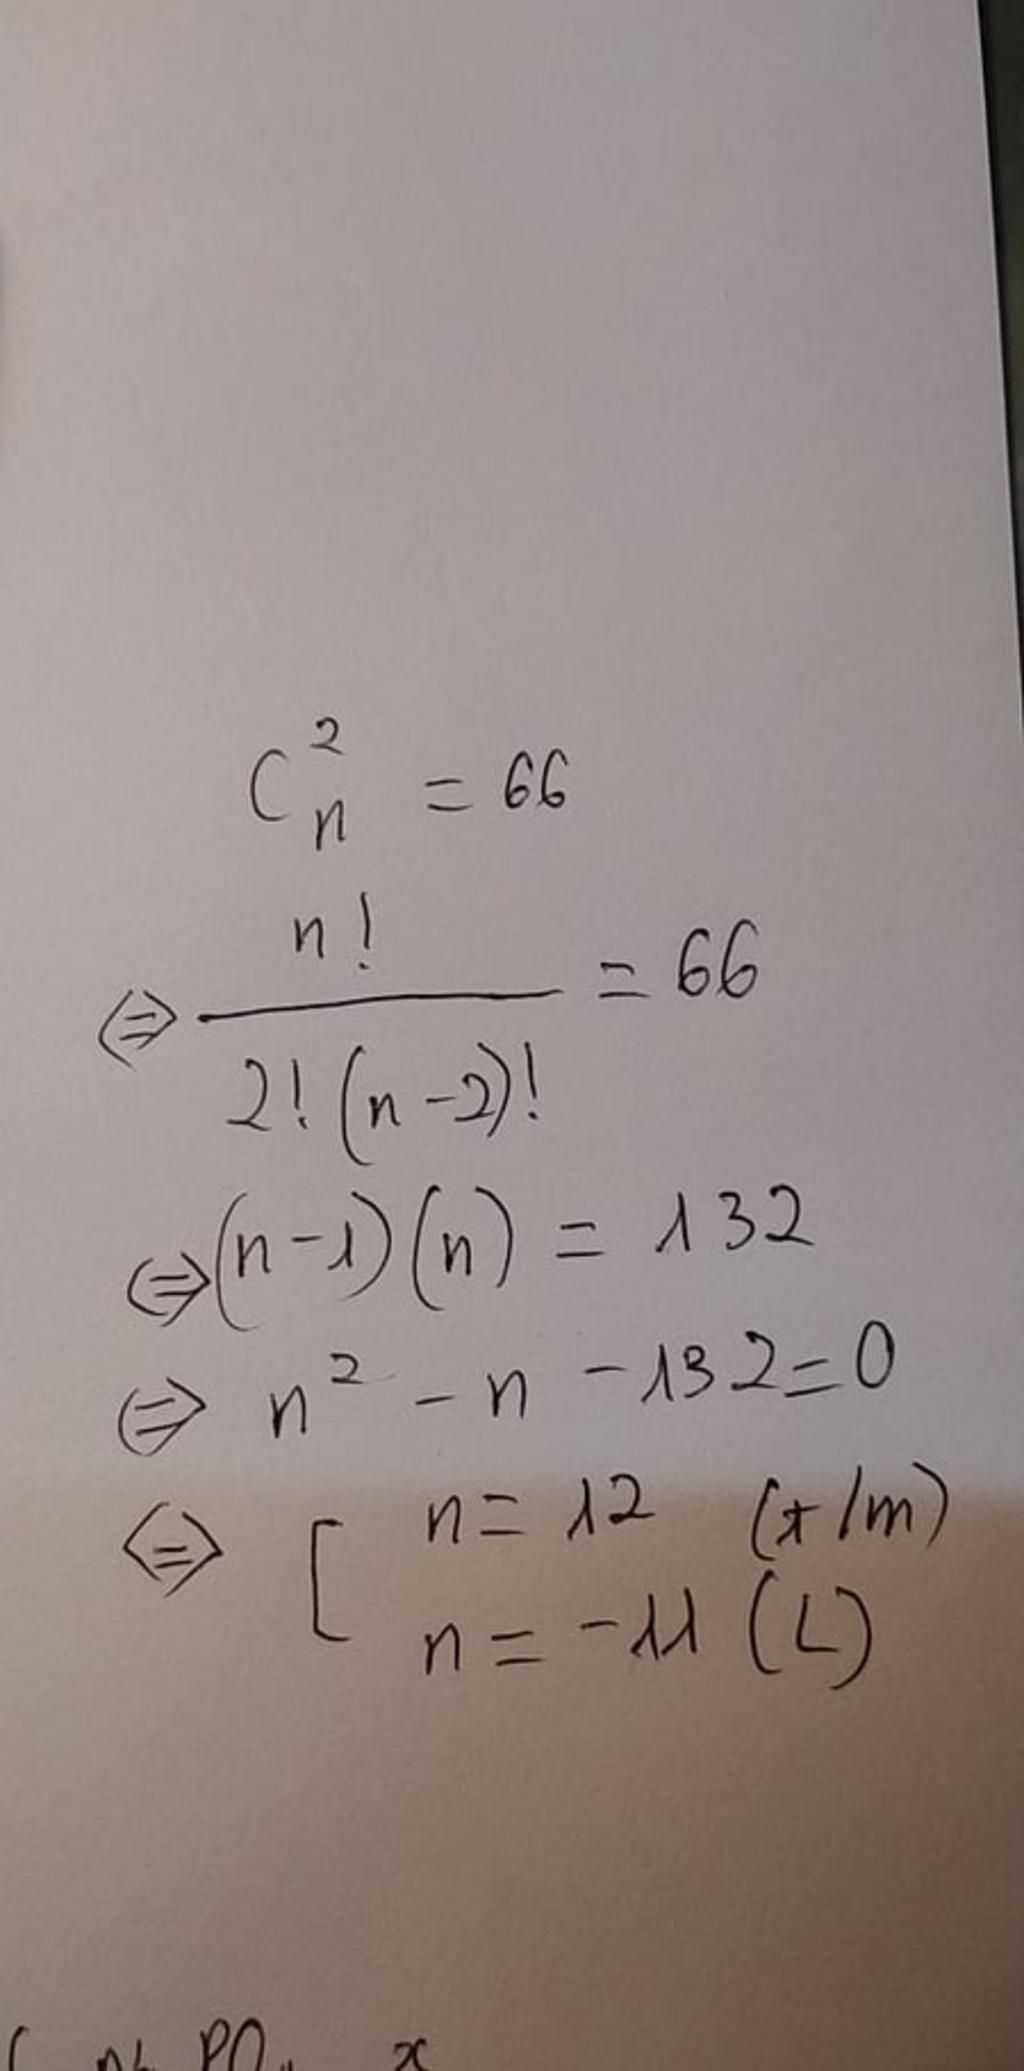 C_n^2 = 66
⇔ n! / 2!(n-2)! = 66
⇔ (n-1)(n) = 132
⇔ n² - n - 132 = 0
⇔ [ n = 12 (t/m)
n = -11 (L)